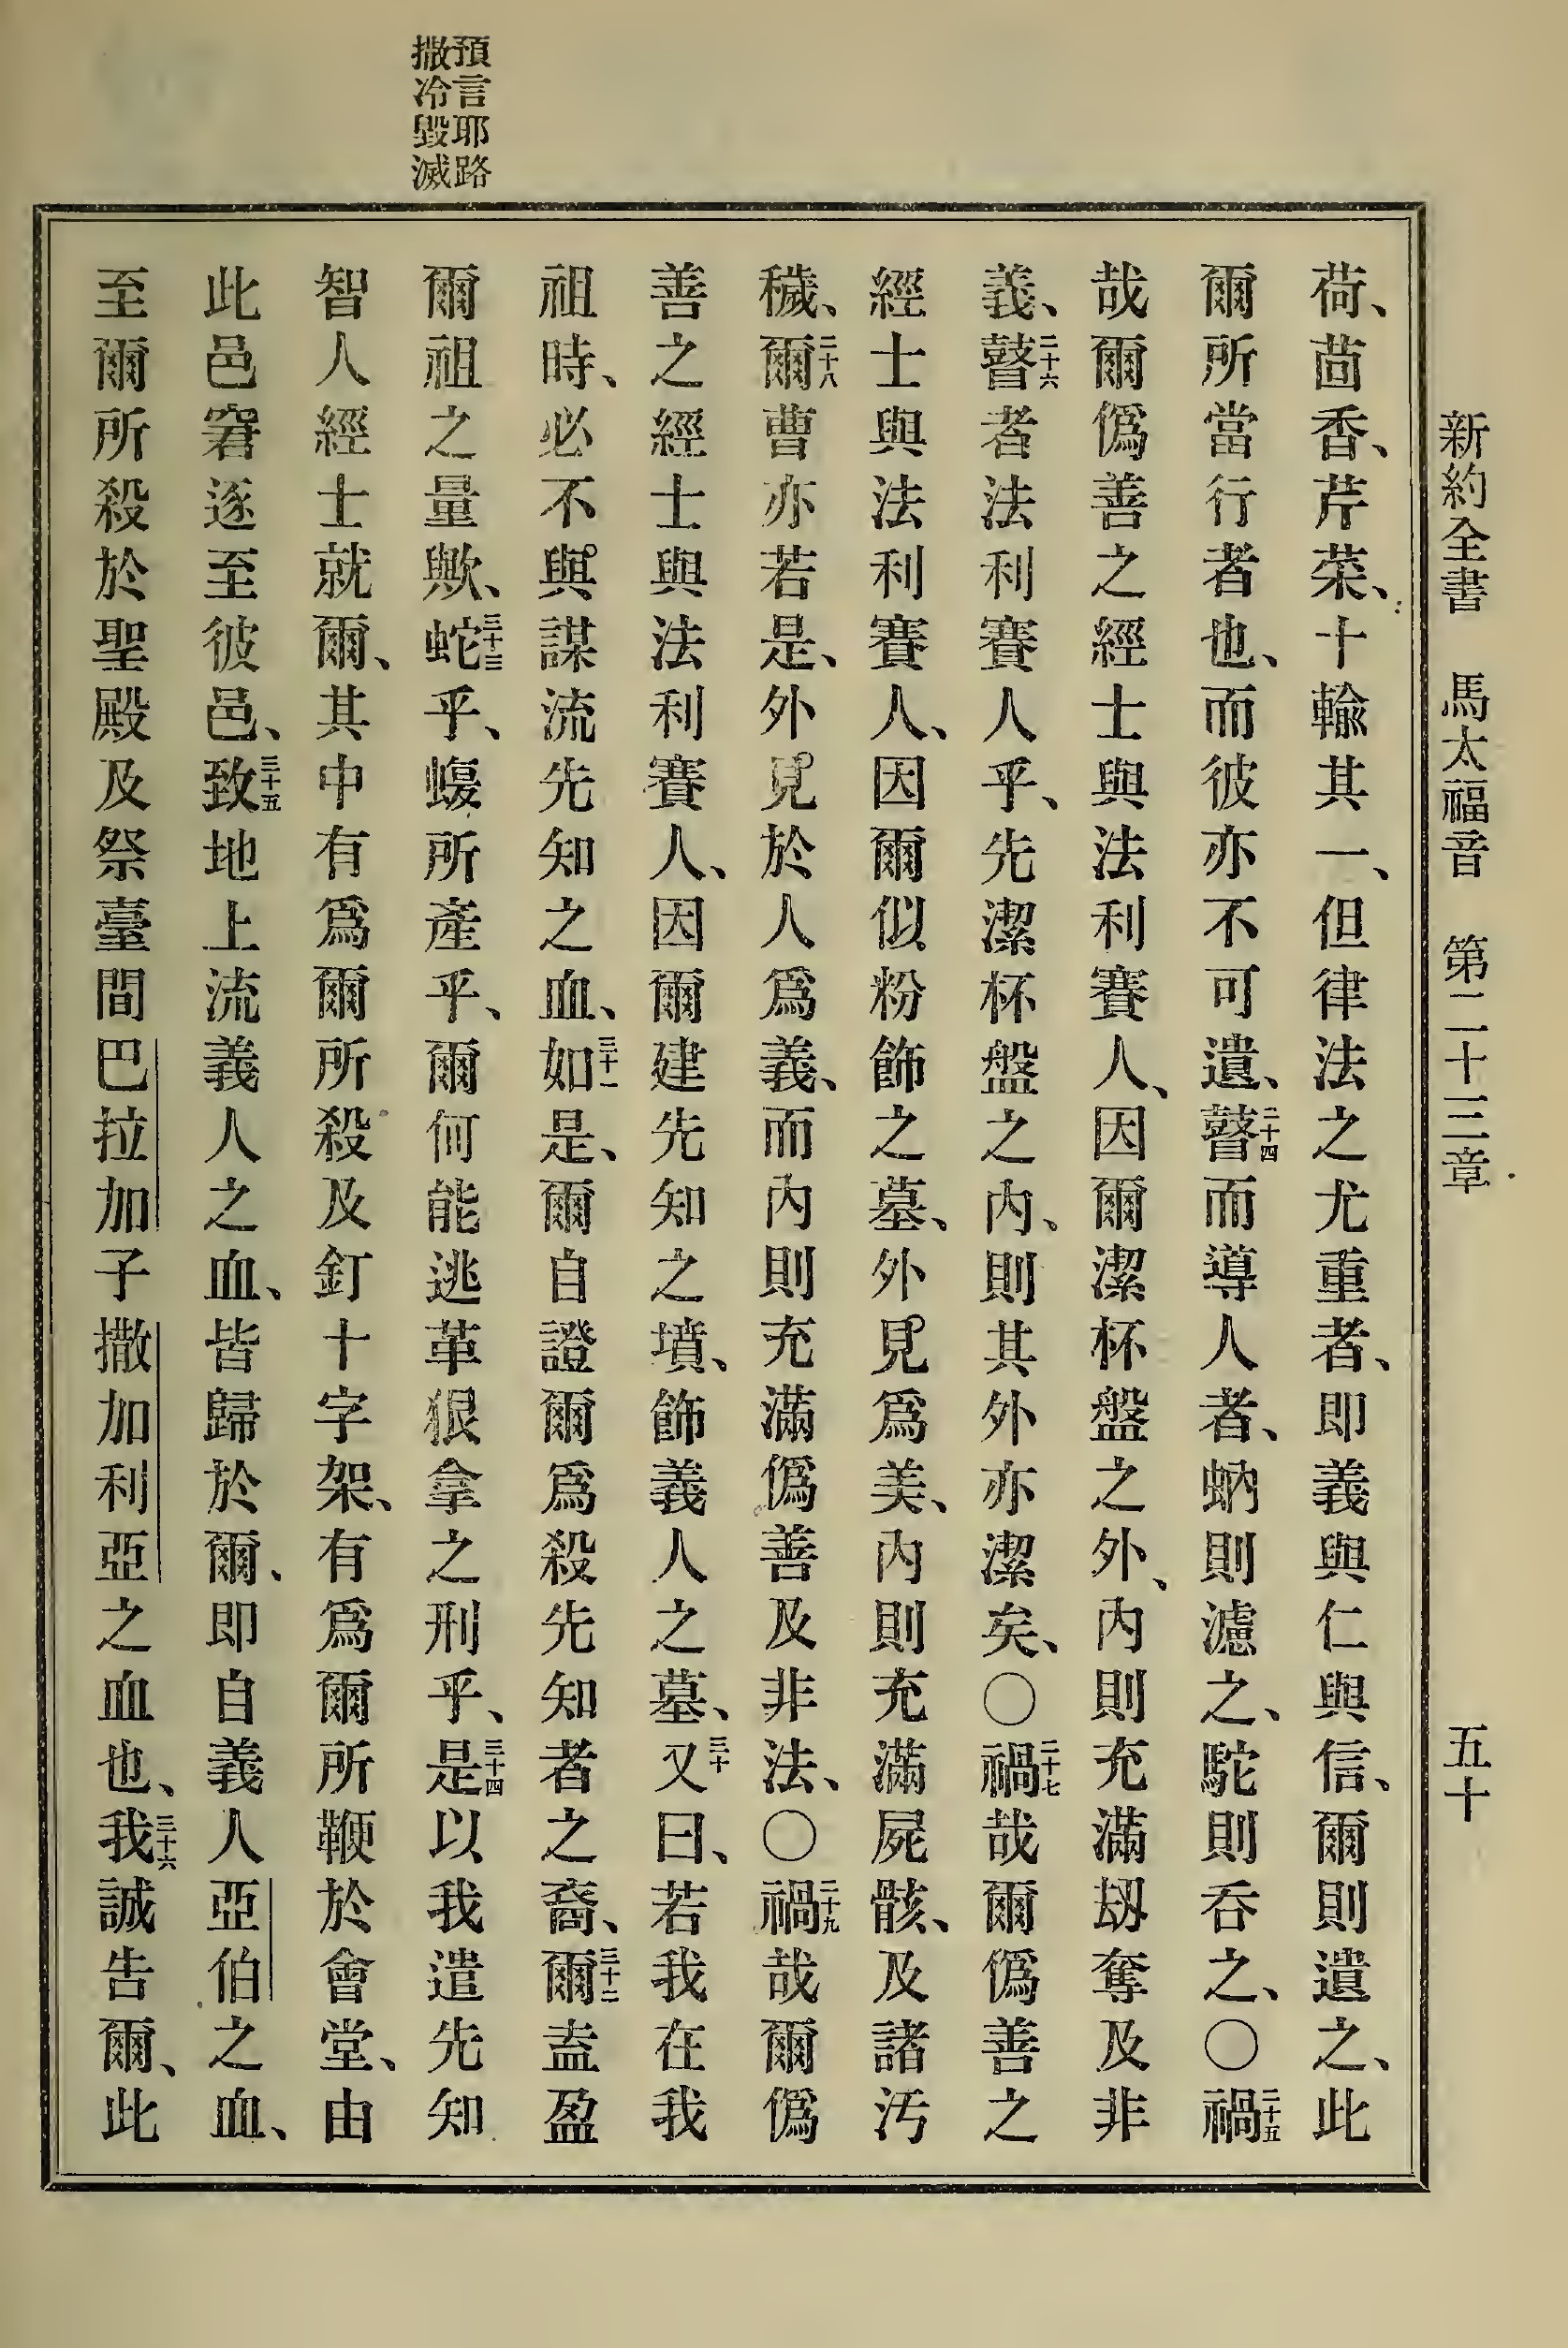 新約全書 馬太福音 第二十三章 五十
預言耶路
撒冷毀滅
荷、茴香、芹菜、十輸其一、但律法之尤重者、即義與仁與信、爾則遺之、此
爾所當行者也、而彼亦不可遺、二十四瞽而導人者、蚋則濾之、駝則吞之、〇二十五禍
哉爾僞善之經士與法利賽人、因爾潔杯盤之外、內則充滿刼奪及非
義、二十六瞽者法利賽人乎、先潔杯盤之內、則其外亦潔矣、〇二十七禍哉爾僞善之
經士與法利賽人、因爾似粉飾之墓、外見爲美、內則充滿屍骸、及諸汚
穢、二十八爾曹亦若是、外見於人爲義、而內則充滿僞善及非法、〇二十九禍哉爾僞
善之經士與法利賽人、因爾建先知之墳、飾義人之墓、三十又曰、若我在我
祖時、必不與謀流先知之血、三十一如是、爾自證爾爲殺先知者之裔、三十二爾盍盈
爾祖之量歟、三十三蛇乎、蝮所產乎、爾何能逃革狠拿之刑乎、三十四是以我遣先知
智人經士就爾、其中有爲爾所殺及釘十字架、有爲爾所鞭於會堂、由
此邑窘逐至彼邑、三十五致地上流義人之血、皆歸於爾、即自義人亞伯之血、
至爾所殺於聖殿及祭臺間巴拉加子撒加利亞之血也、三十六我誠告爾、此